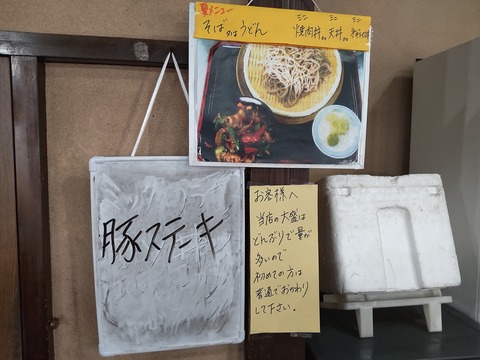 夏メニュー
そば又はうどん
ミニ ミニ ミニ
焼肉丼 天丼
豚ステーキ
お客様へ
当店の大盛は
どんぶりで量が
多いので
初めての方は
普通でおかわり
して下さい。